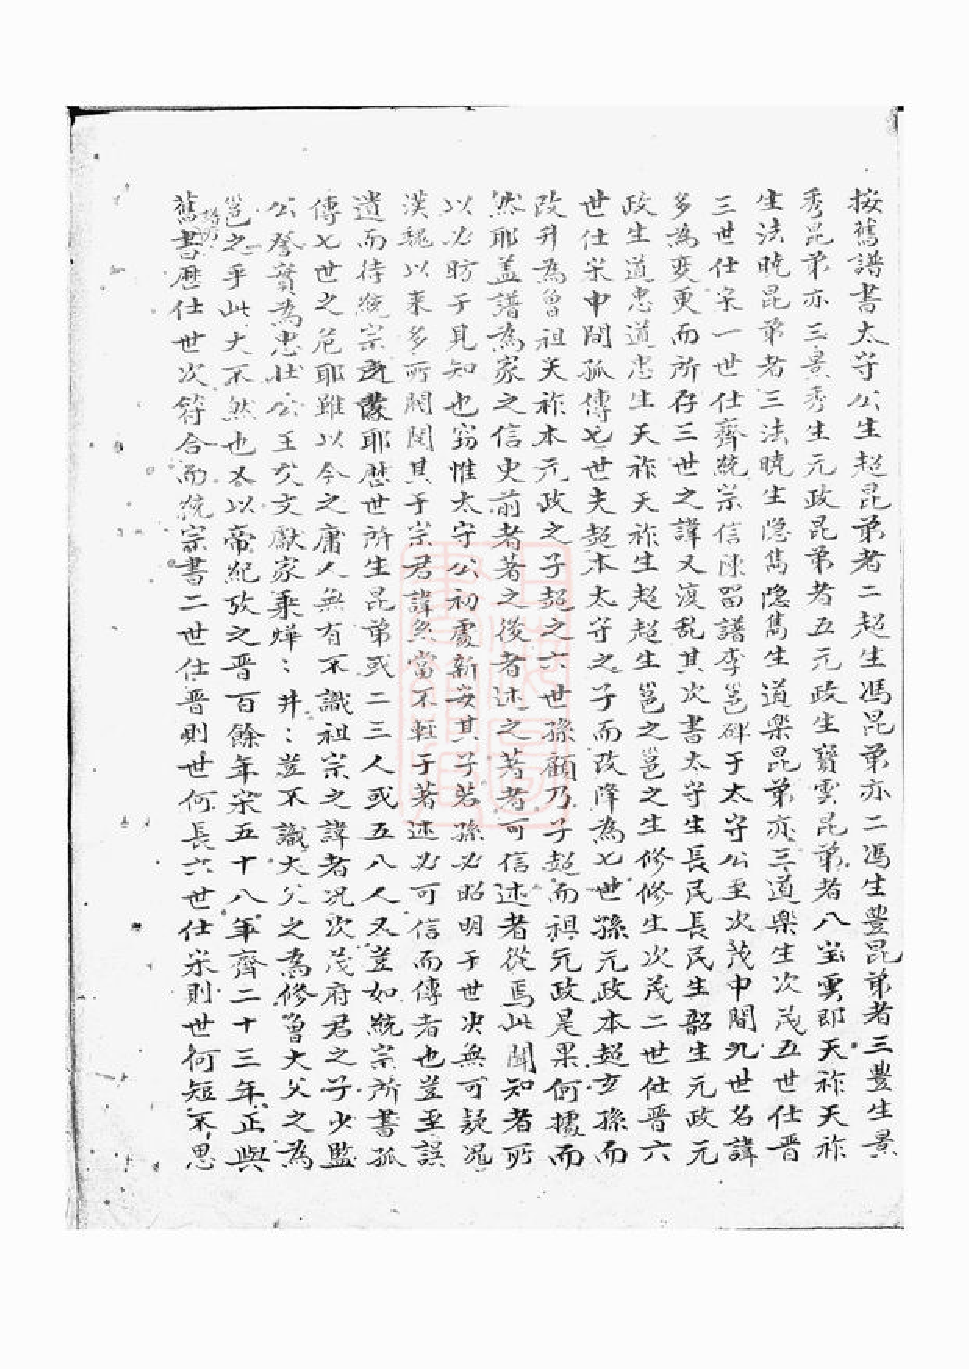 按舊譜書太守公生超昆弟者二超生馮昆弟亦二馮生豊昆弟者三豊生景
秀昆弟亦三景秀生元政昆弟者五元政生寶雲昆弟者八寶雲即天祚天祚
生法曉昆弟者三法曉生隱雋隱雋生道樂昆弟亦三道樂生次茂五世仕晋
三世仕宋一世仕齊統宗信陳留譜李邕碑于太守公至次茂中間九世名諱
多為変更而所存三世之諱又復乱其次書太守生長民長民生韶韶生元政元
政生道惠道惠生天祚天祚生超超生邕之邕之生修修生次茂二世仕晋六
世仕宋中間孤傳七世夫超本太守之子而改降為七世孫元政本超玄孫而
改升為曾祖矣天祚本元政之子超之六世孫顧乃子超而祖元政是果何據而
然耶盖譜為家之信史前者著之後者述之著者可信述者從焉此聞知者所
以必昉于見知也竊惟太守公初處新安其子若孫必昭明于世决無可疑况
漢魏以来多所閥閱其于宗君諱系當不軽于著述必可信而傳者也豈至誤
遺而待統宗之改耶歷世所生昆弟或二三人或五八人又豈如統宗所書孤
傳七世之危耶雖以今之庸人無有不識祖宗之諱者况次茂府君之子少監
公詧實為忠壮公王父文獻家乘燁〻井〻豈不識大父之為修曽大父之為
邕之乎此大不然也以帝紀攷之晋百餘年宋五十八年齊二十三年正與
舊譜所書歷仕世次符合而統宗書二世仕晋則世何長六世仕宋則世何短不思